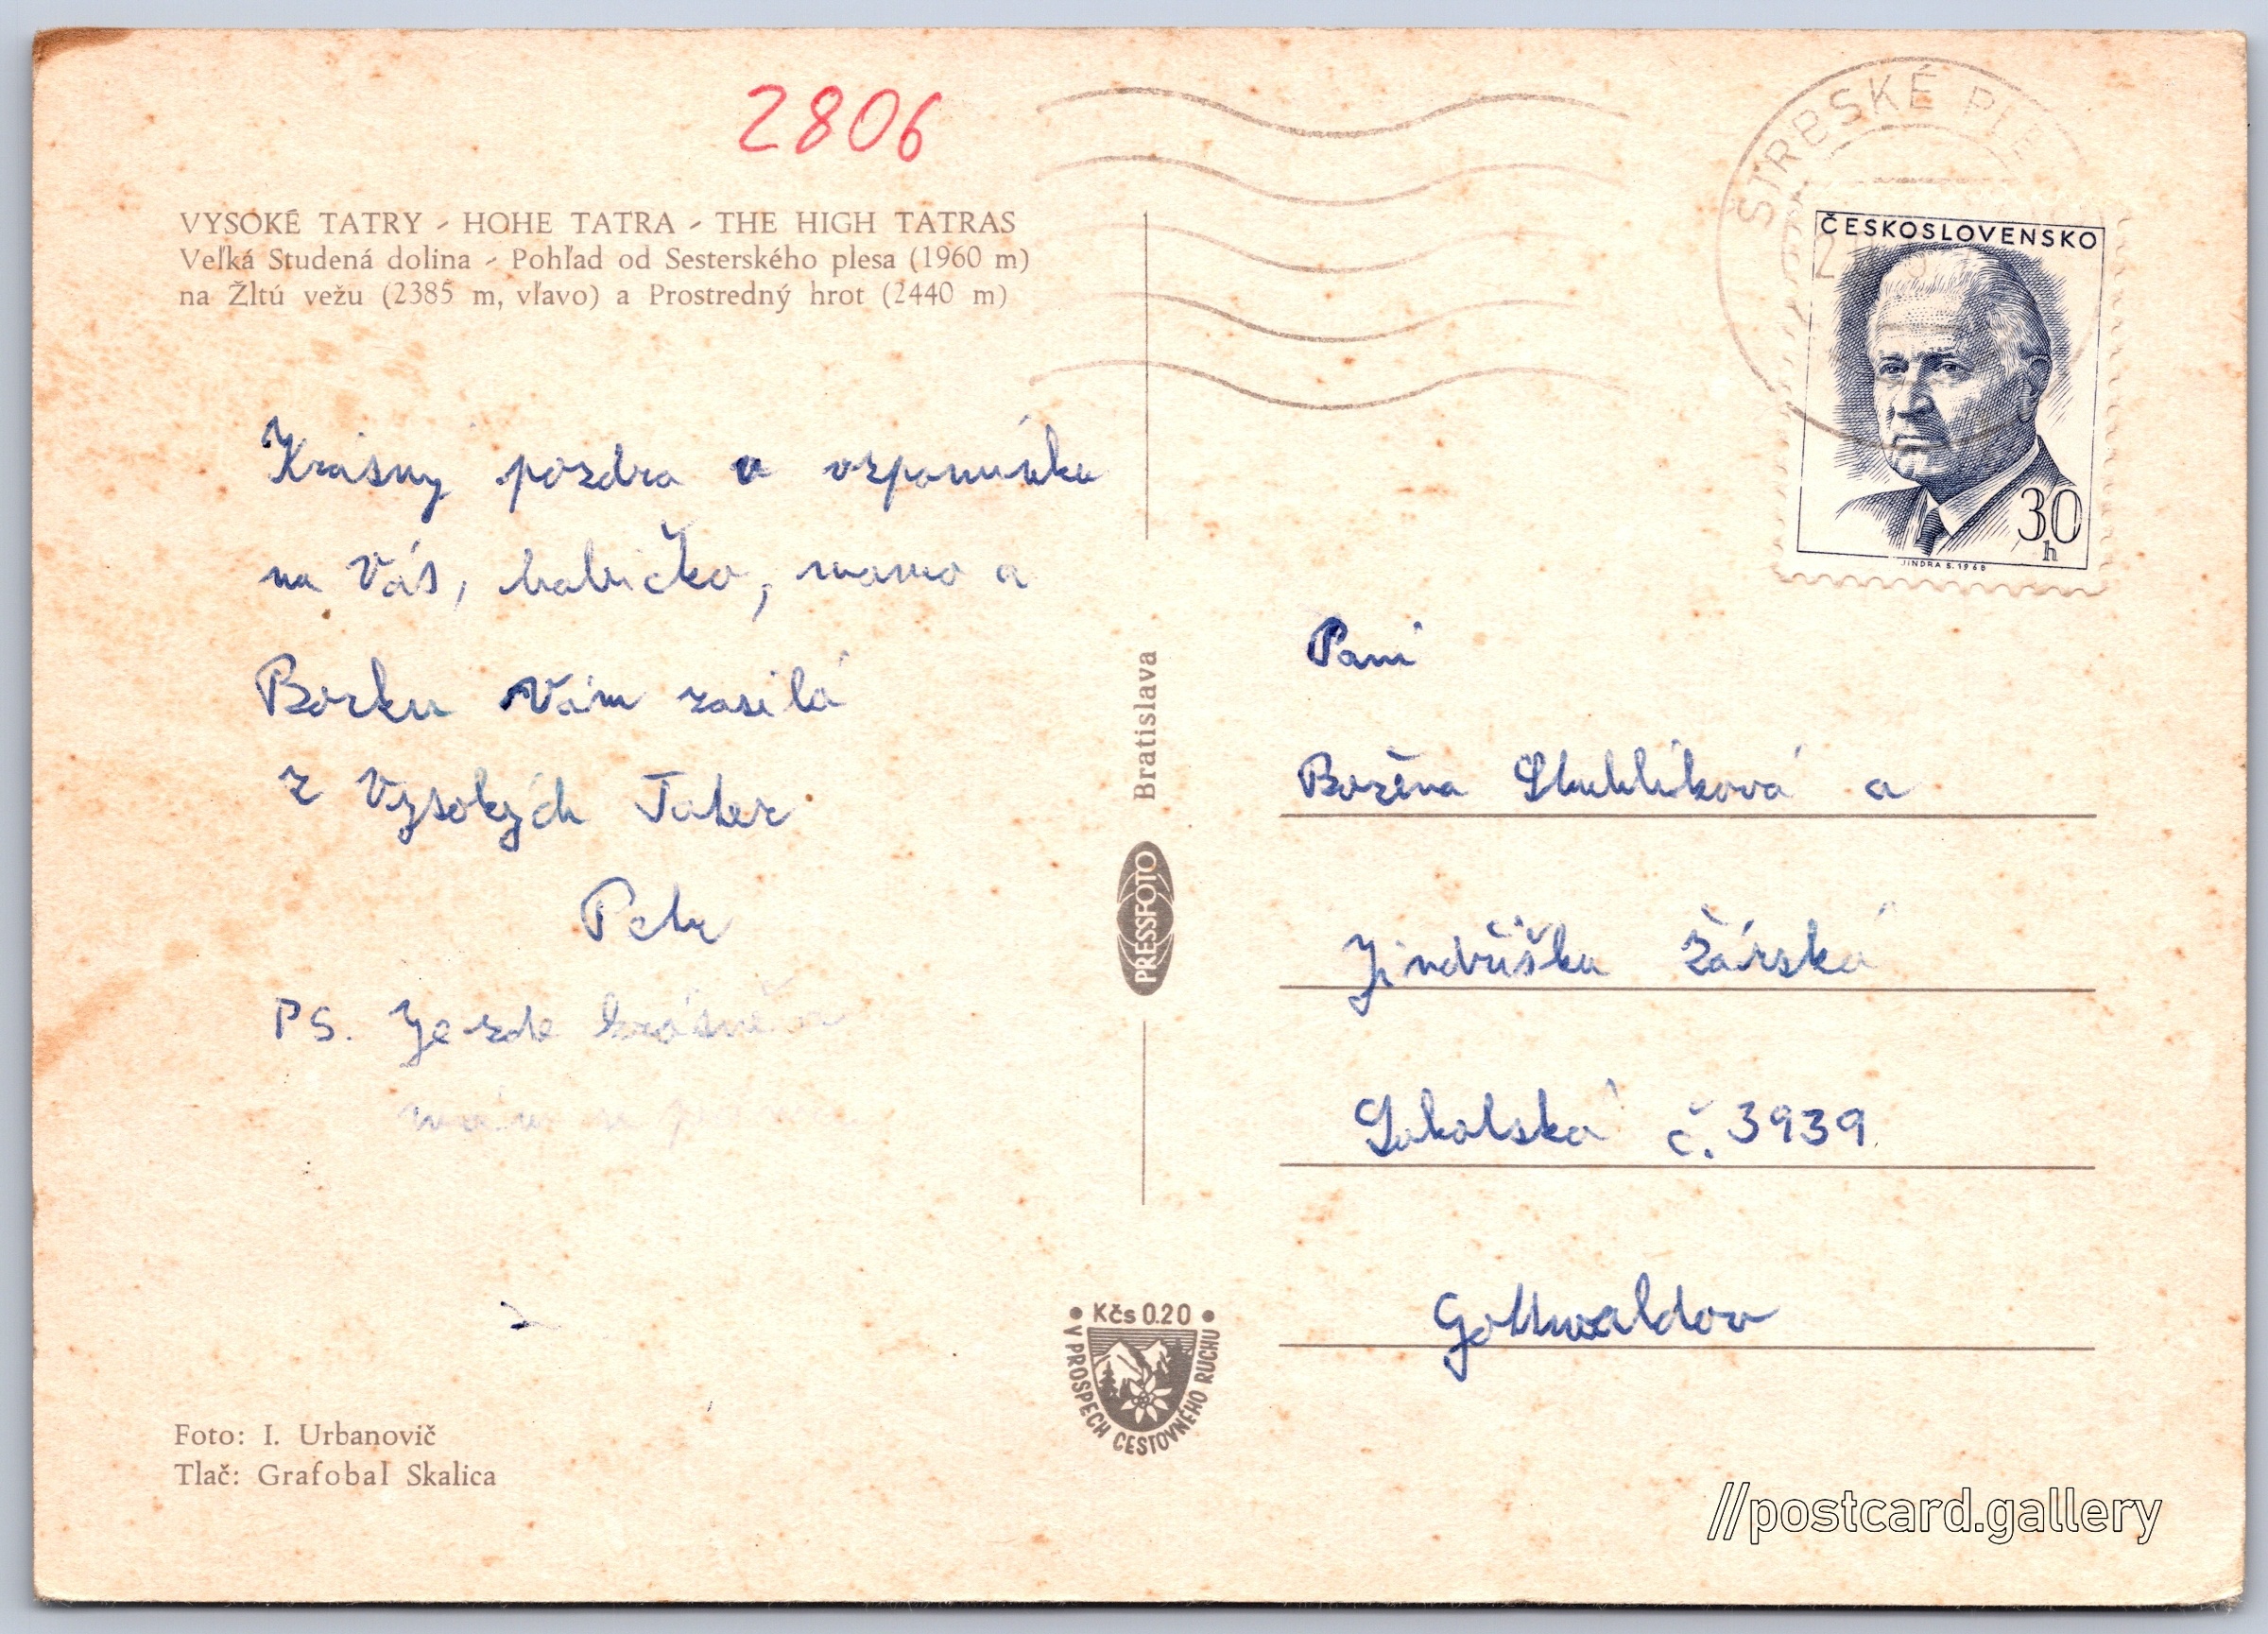 2806
VYSOKÉ TATRY - HOHE TATRA - THE HIGH TATRAS
Veľká Studená dolina - Pohľad od Sesterského plesa (1960 m)
na Žltú vežu (2385 m, vľavo) a Prostredný hrot (2440 m)
Krásny pozdra v vzpomínku
na Vás, babičko, mamo a
Borku Vám zasílá
z Vysokých Tater
Petr
PS. Je zde krásně
Foto: I. Urbanovič
Tlač: Grafobal Skalica
Bratislava
PRESSFOTO
Kčs 0.20
V PROSPECH CESTOVNÉHO RUCHU
ŠTRBSKÉ PLE
ČESKOSLOVENSKO
30
h
JINDRA S. 1968
Paní
Božena a
Jindřiška Žárská
Sokolská č. 3939
Gottwaldov
//postcard.gallery